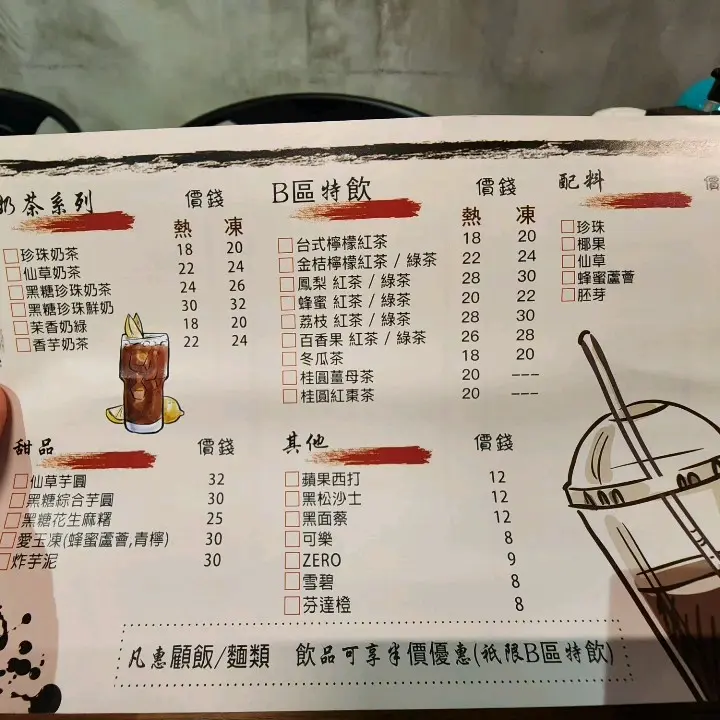 奶茶系列 價錢
熱 凍
珍珠奶茶 18 20
仙草奶茶 22 24
黑糖珍珠奶茶 24 26
黑糖珍珠鮮奶 30 32
茉香奶綠 18 20
香芋奶茶 22 24
B區特飲 價錢
熱 凍
台式檸檬紅茶 18 20
金桔檸檬紅茶 / 綠茶 22 24
鳳梨 紅茶 / 綠茶 28 30
蜂蜜 紅茶 / 綠茶 20 22
荔枝 紅茶 / 綠茶 28 30
百香果 紅茶 / 綠茶 26 28
冬瓜茶 18 20
桂圓薑母茶 20 ---
桂圓紅棗茶 20 ---
配料 價
珍珠
椰果
仙草
蜂蜜蘆薈
胚芽
甜品 價錢
仙草芋圓 32
黑糖綜合芋圓 30
黑糖花生麻糬 25
愛玉凍(蜂蜜蘆薈,青檸) 30
炸芋泥 30
其他 價錢
蘋果西打 12
黑松沙士 12
黑面蔡 12
可樂 8
ZERO 9
雪碧 8
芬達橙 8
凡惠顧飯/麵類 飲品可享半價優惠(祇限B區特飲)